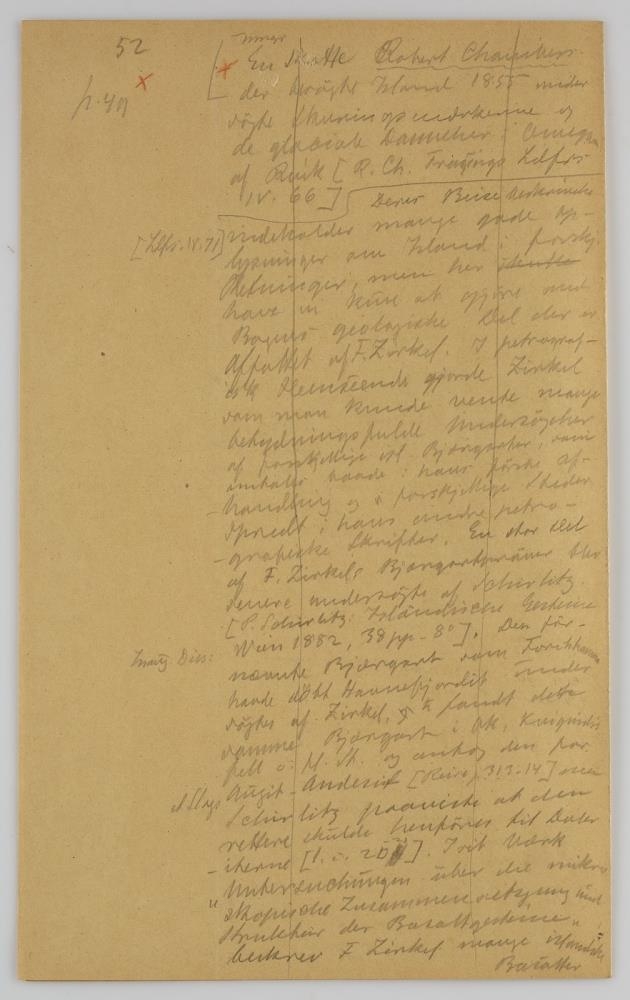 52
p. 49
En Skotte Robert Chambers
der besögte Island 1855 under
sögte Skuringsmærkerne og
de glaciale Dannelser i Omegn
af Rvik [R. Ch. Tracings Ldfrs
IV. 66] Deres Reise beskrivelse
[Ldfrs. IV. 71] indeholder mange gode Op-
lysninger om Island i forskj.
Retninger, men her
have vi kun at gjöre med
Bogens geologiske Del der er
affattet af F. Zirkel. I petrograf-
isk Henseende gjorde Zirkel
som man kunde vente mange
betydningsfulde Undersögelser
af forskjellige isl. Bjergarter, som
omtales baade i hans förste af-
handling og i forskjellige Steder
spredt i hans andre petro-
grafiske Skrifter. En stor Del
af F. Zirkels Bjergartspröver blev
senere undersögte af Schirlitz.
[P. Schirlitz: Isländische Gesteine
Wien 1882, 38 pp. 8°]. Den för-
Inaug. Diss: nævnte Bjergart som Forchhammer
havde döbt Havnefjordit under
sögtes af Zirkel, fandt dette
samme Bjergart i Ok,
fell o: M. St. og antog den for
Augit-Andesit [Reise, 313-14] men
Schirlitz paaviste at den
rettere skulde henföres til Doler
iterne [l. c. 20]. I sit Værk
"Untersuchungen über die mikro
skopische Zusammensetzung und
Struktur der Basaltgesteine"
beskrev F Zirkel mange islandske
Basalter